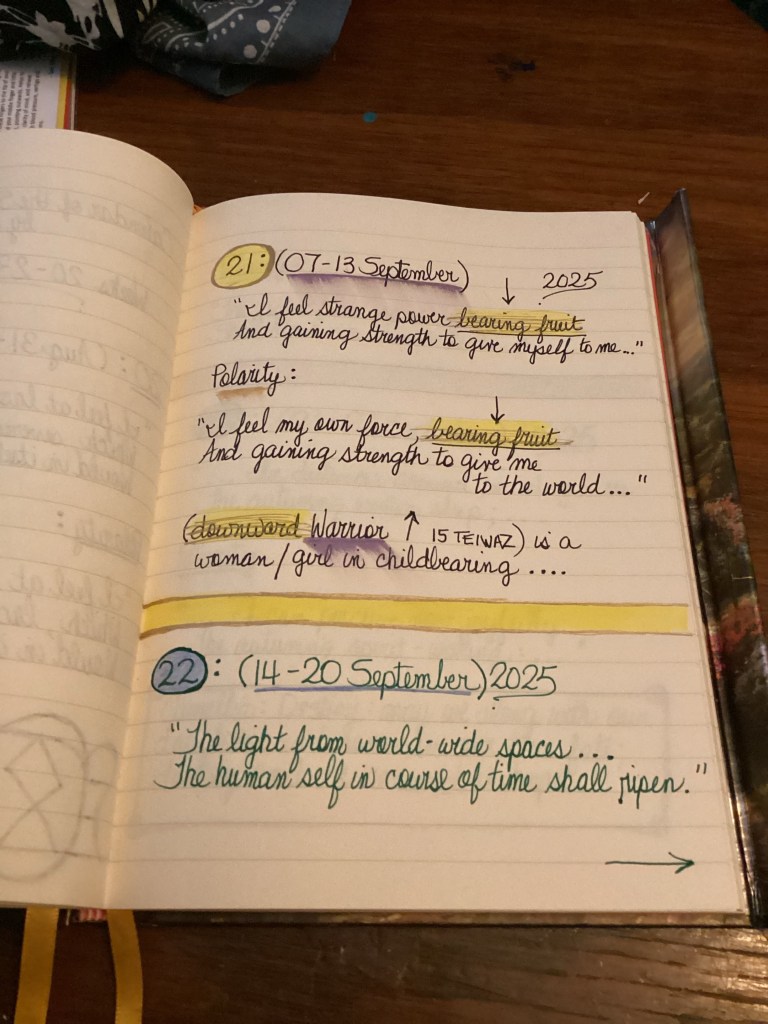 21: (07-13 September)
2025
"I feel strange power bearing fruit
And gaining strength to give myself to me..."
Polarity:
"I feel my own force, bearing fruit
And gaining strength to give me
to the world..."
(downward Warrior ↑ 15 TEIWAZ) is a
woman/girl in childbearing ....
22: (14-20 September) 2025
"The light from world-wide spaces...
The human self in course of time shall ripen."